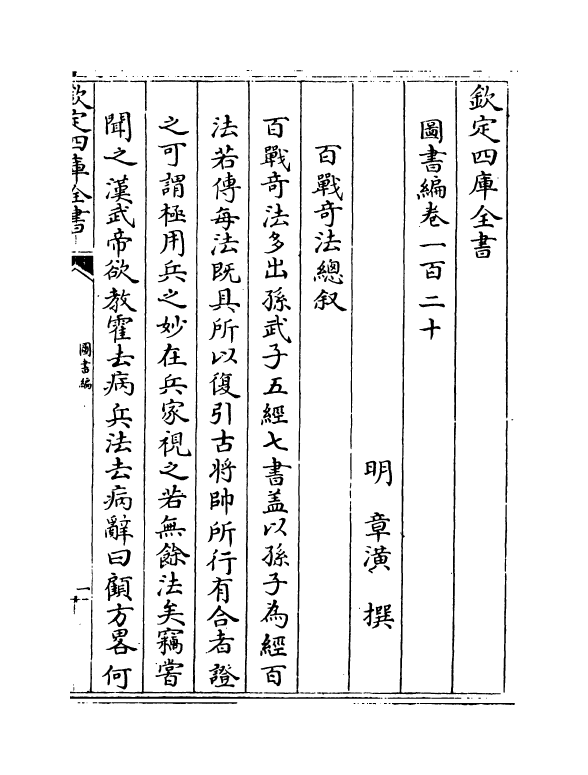 欽定四庫全書
圖書編卷一百二十
明 章潢 撰
百戰竒法總叙
百戰竒法多出孫武子五經七書盖以孫子為經百
法若傳每法既具所以復引古將帥所行有合者證
之可謂極用兵之妙在兵家視之若無餘法矣竊嘗
聞之漢武帝欲教霍去病兵法去病辭曰顧方畧何
欽定四庫全書
圖書編